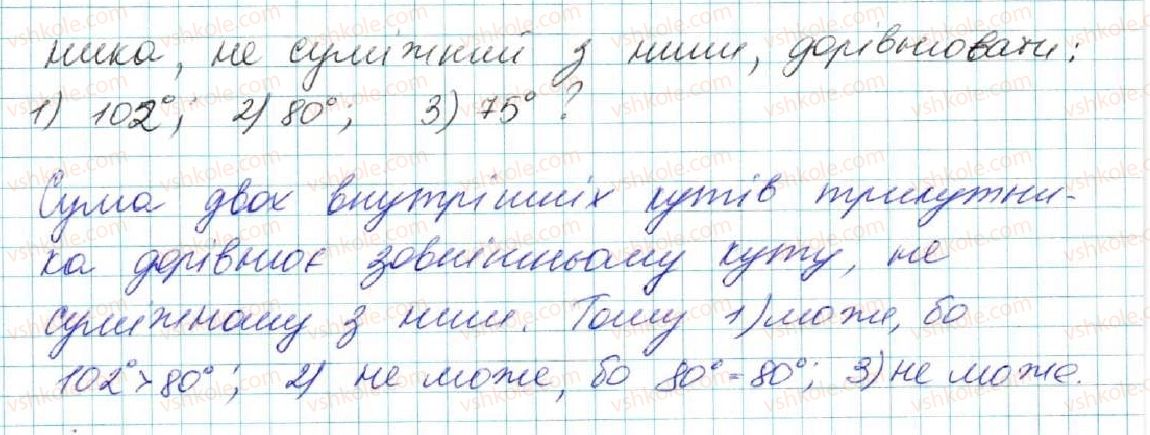 ника, не суміжний з ними, дорівнювати:
1) 102°; 2) 80°; 3) 75°?
Сума двох внутрішніх кутів трикутни-
ка дорівнює зовнішньому куту, не
суміжному з ним. Тому 1) може, бо
102° > 80°; 2) не може, бо 80° = 80°; 3) не може.